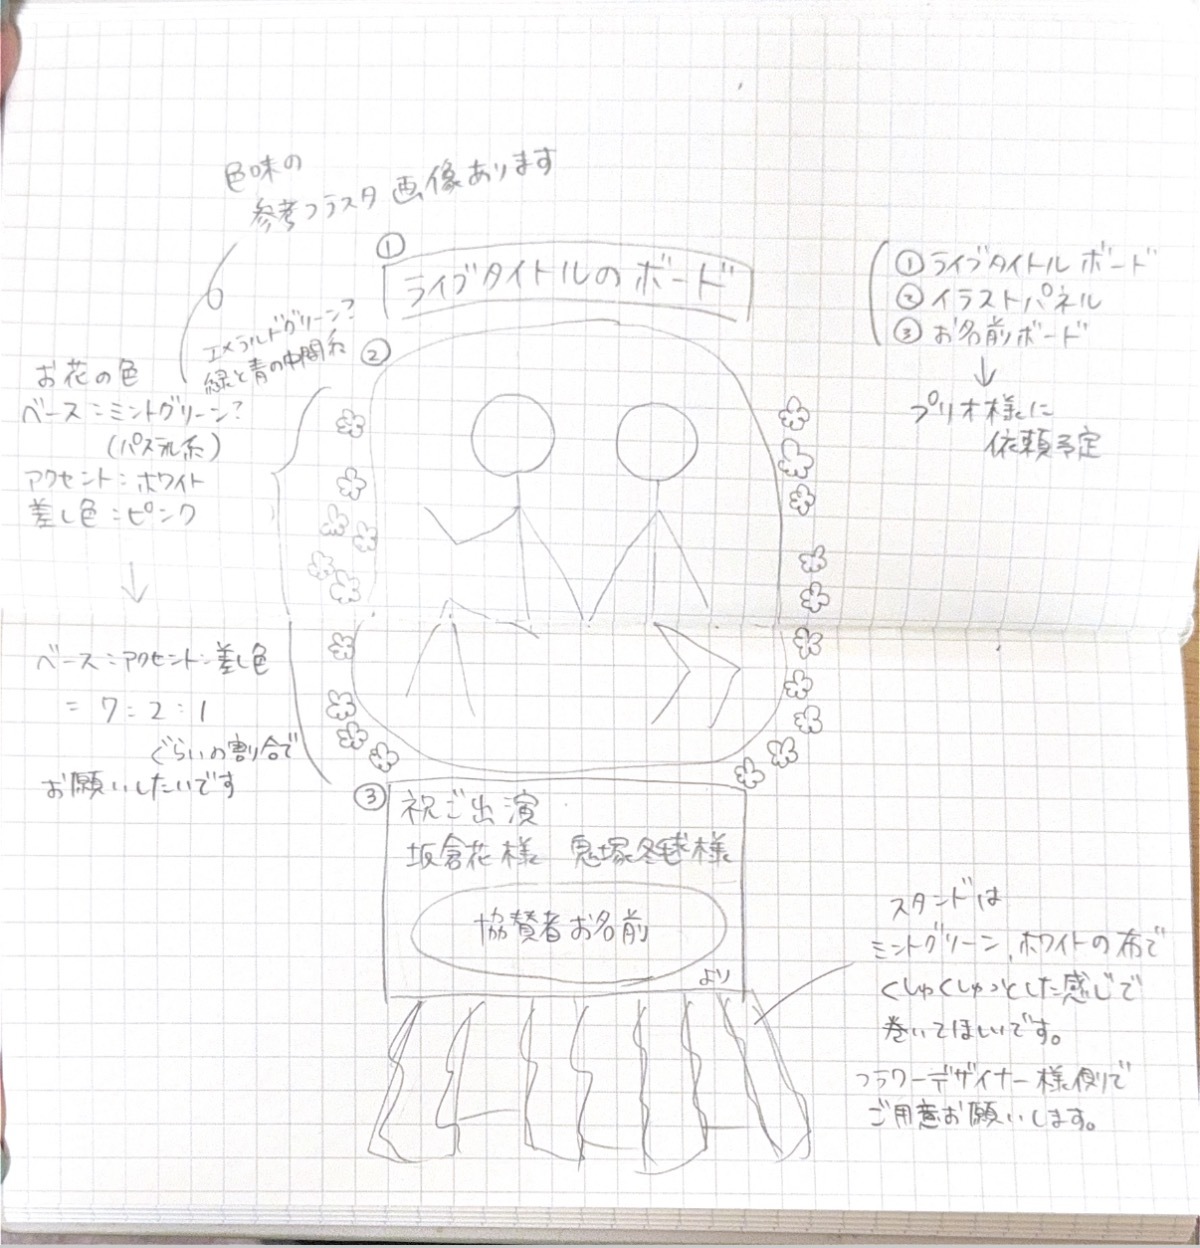 色味の
参考フラスタ 画像あります
①
ライブタイトルのボード
①ライブタイトルボード
②イラストパネル
③お名前ボード
↓
プリオ様に
依頼予定
エメラルドグリーン?
緑と青の中間系
②
お花の色
ベース:ミントグリーン?
(パステル系)
アクセント:ホワイト
差し色:ピンク
↓
ベース:アクセント:差し色
=7:2:1
ぐらいの割合で
お願いしたいです
③
祝ご出演
坂倉花様 鬼塚冬毬様
協賛者お名前
より
スタンドは
ミントグリーン、ホワイトの布で
くしゅくしゅっとした感じで
巻いてほしいです。
フラワーデザイナー様側で
ご用意お願いします。